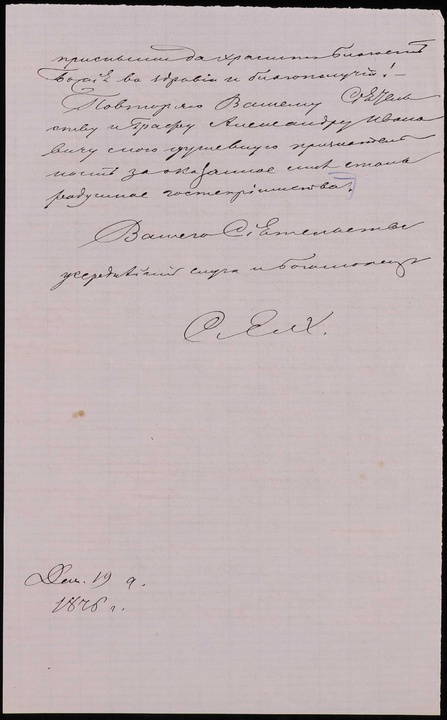 да хранитъ благость
Божія во здравіи и благополучіи! –
Повторяю Вашему Сія
ству и Графу Александру Ивано
вичу мою душевную признатель
ность за оказанное мнѣ столь
радушное гостепріимство.
Вашего Сіятельства
усерднѣйшій слуга и богомолецъ
С. Е. Х.
Дек. 19 д.
1876 г.